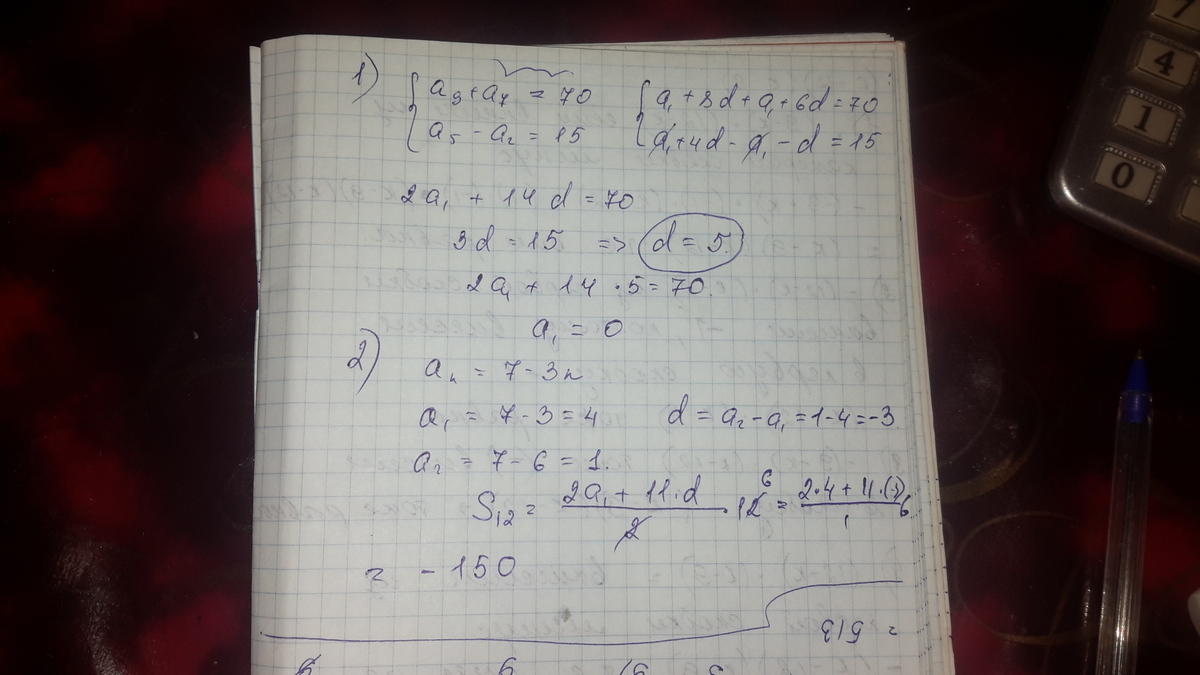 1) { a₉ + a₇ = 70 { a₁ + 8d + a₁ + 6d = 70
a₅ - a₂ = 15 a₁ + 4d - a₁ - d = 15
2a₁ + 14d = 70
3d = 15 => d = 5.
2a₁ + 14 · 5 = 70.
a₁ = 0
2) aₙ = 7 - 3n
a₁ = 7 - 3 = 4 d = a₂ - a₁ = 1 - 4 = -3.
a₂ = 7 - 6 = 1.
S₁₂ = (2a₁ + 11 · d)/2 · 12 6 = (2 · 4 + 11 · (-3))/1 6
= -150
= 513
7
4
1
0